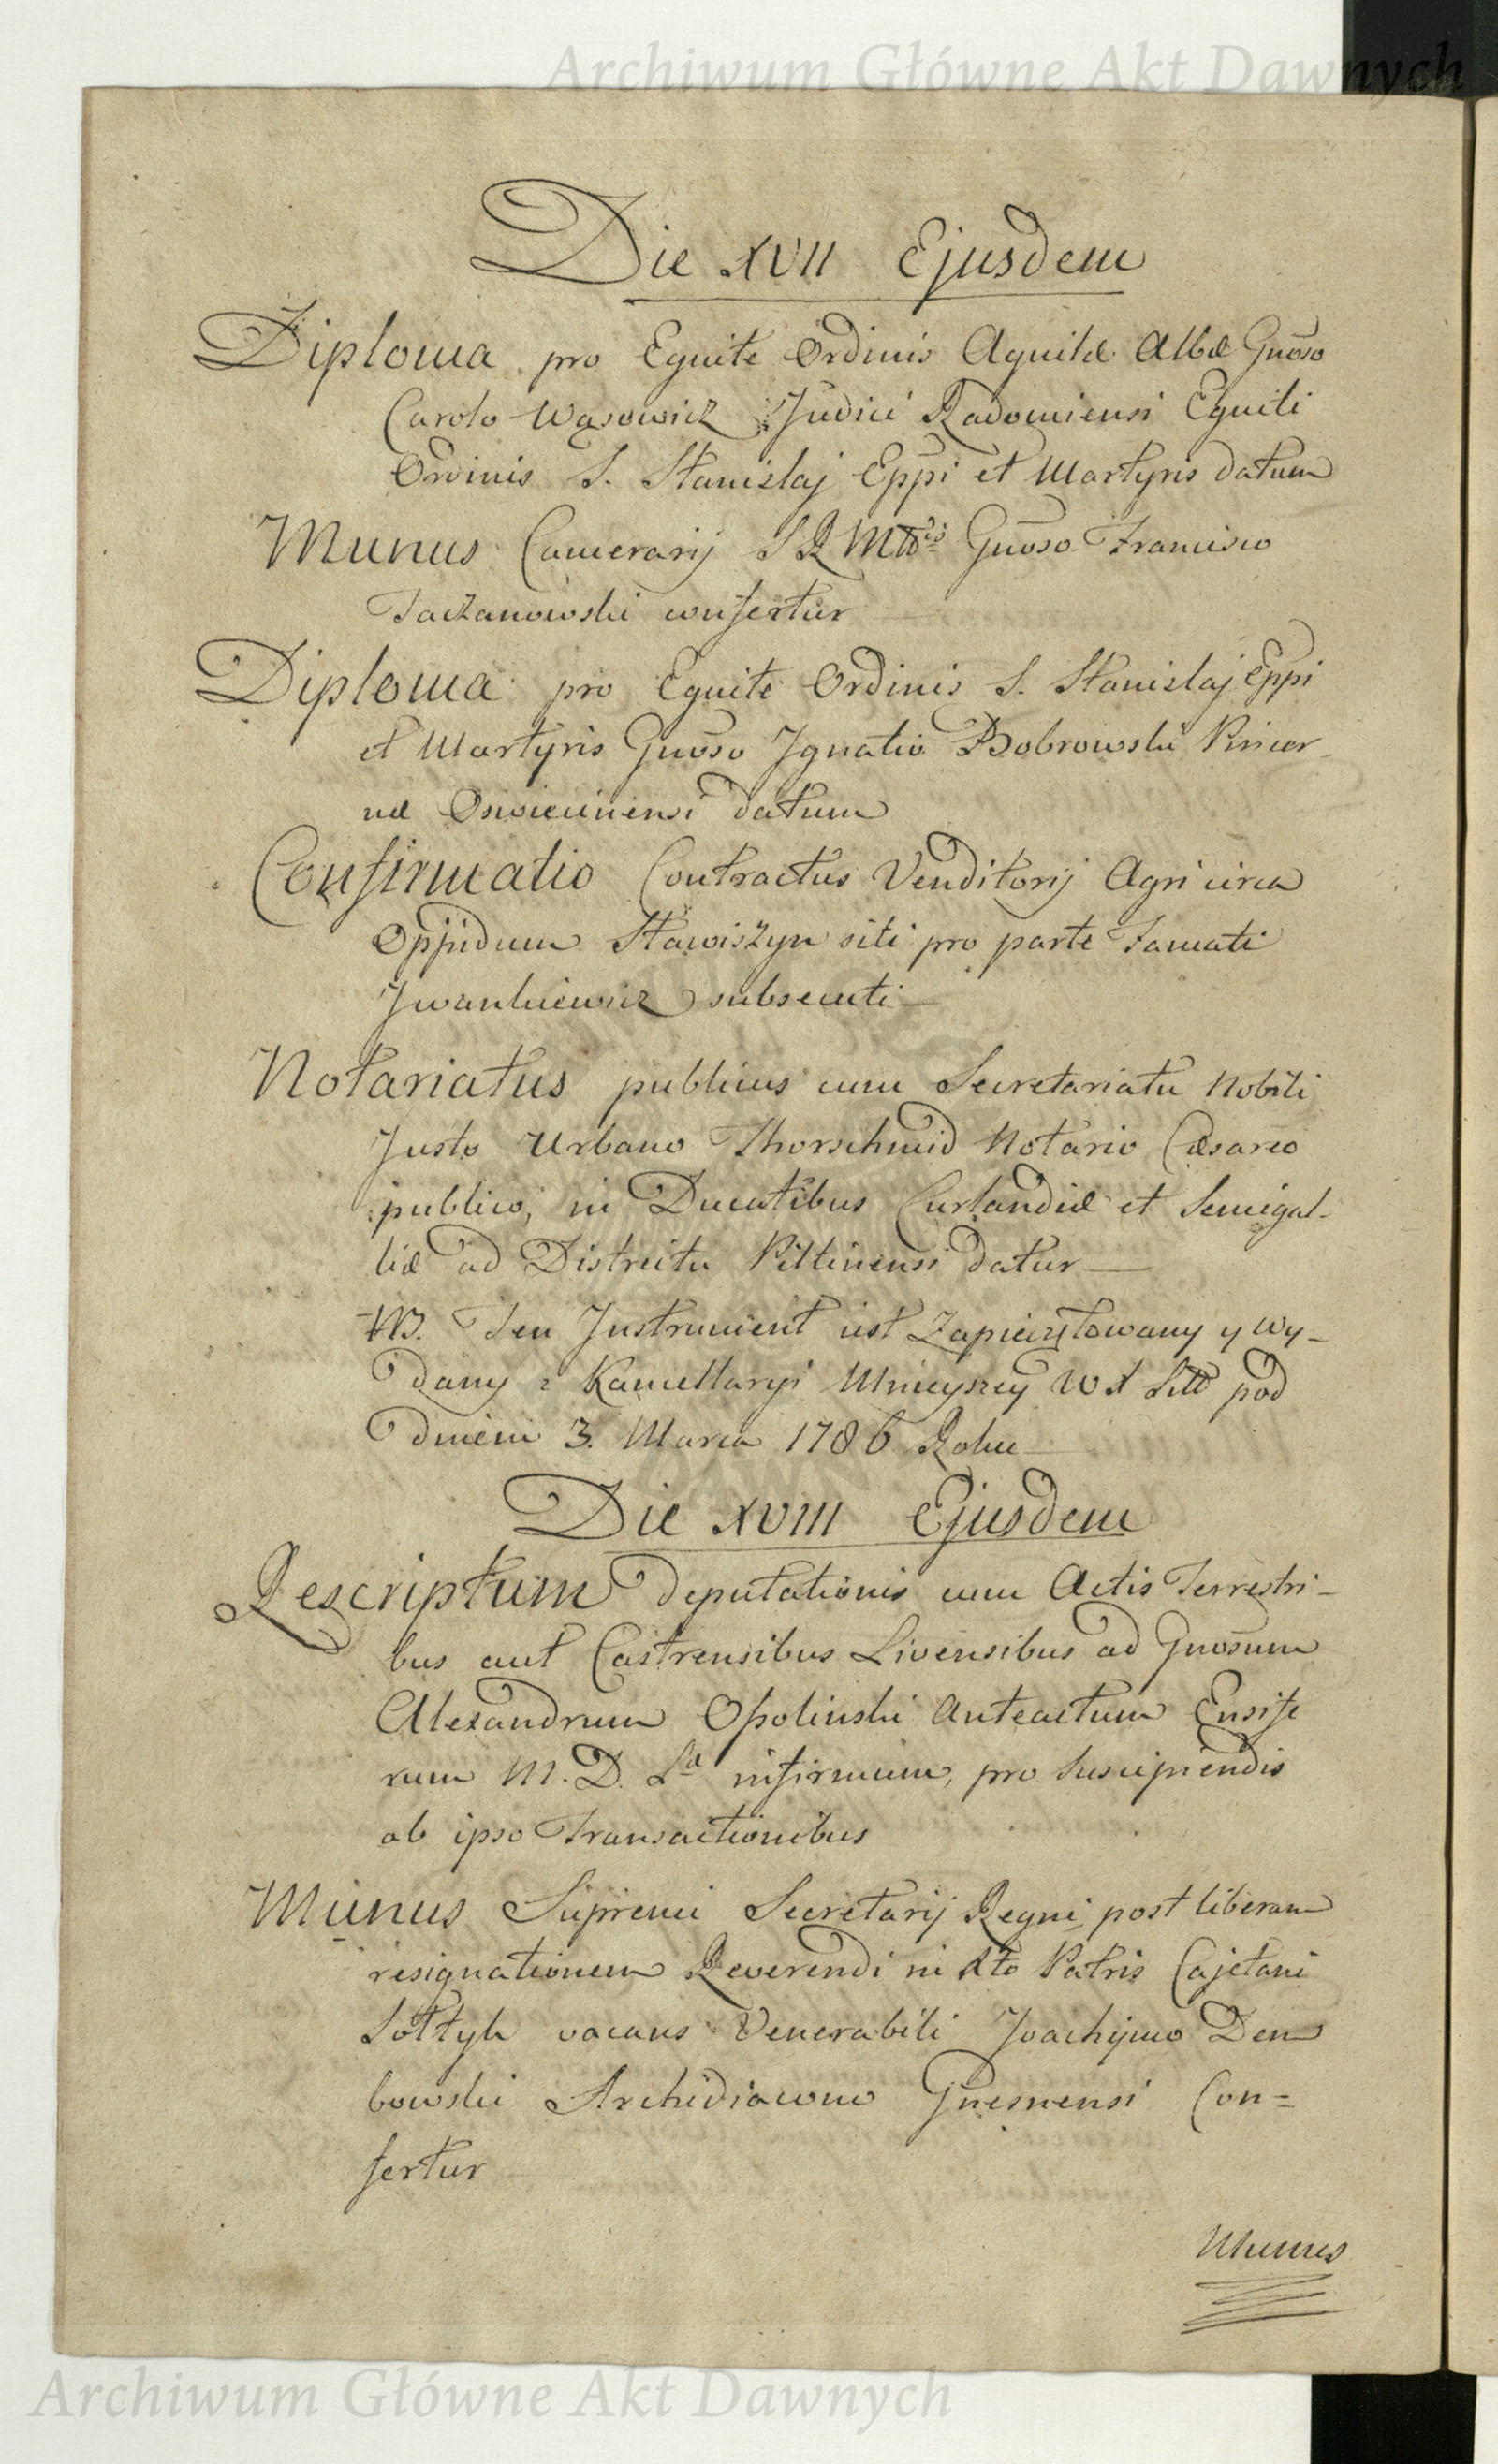 Archiwum Główne Akt Dawnych
Die XVII Ejusdem
Diploma pro Equite Ordinis Aquilæ Albæ Gnōso
Carolo Wąsowicz Judici Radomiensi Equiti
Ordinis S. Stanislaj Eppi et Martyris datum
Munus Camerarij S R Mttis Gnōso Francisco
Taczanowski confertur
Diploma pro Equite Ordinis S. Stanislaj Eppi
et Martyris Gnōso Ignatio Bobrowski Pincer
næ Osviecimensi datum
Confirmatio Contractus Venditorij Agri circa
Oppidum Stawiszyn siti pro parte Famati
Iwankiewicz subsecuti
Notariatus publicus cum Secretariatu Nobili
Justo Urbano Thorschmid Notario Cæsareo
publico, in Ducatibus Curlandiæ et Semigal-
liæ ad Districtu Piltinensi datur
NB. Ten Instrument iest Zapieczętowany y wy-
dany z Kancellaryi Mnieyszey W X Litt pod
dniem 3. Marca 1786 Roku
Die XVIII Ejusdem
Rescriptum Deputationis cum Actis Terrestri-
bus aut Castrensibus Livensibus ad Gnōsum
Alexandrum Opolinski Anteactum Ensife
rum M. D. Lae infirmum, pro suscipiendis
ab ipso Transactionibus
Munus Supremi Secretarij Regni post liberam
resignationem Reverendi in Xto Patris Cajetani
Sołtyk vacans Venerabili Joachimo Dem
bowski Archidiacono Gnesnensi Con=
fertur
Munus
Archiwum Główne Akt Dawnych